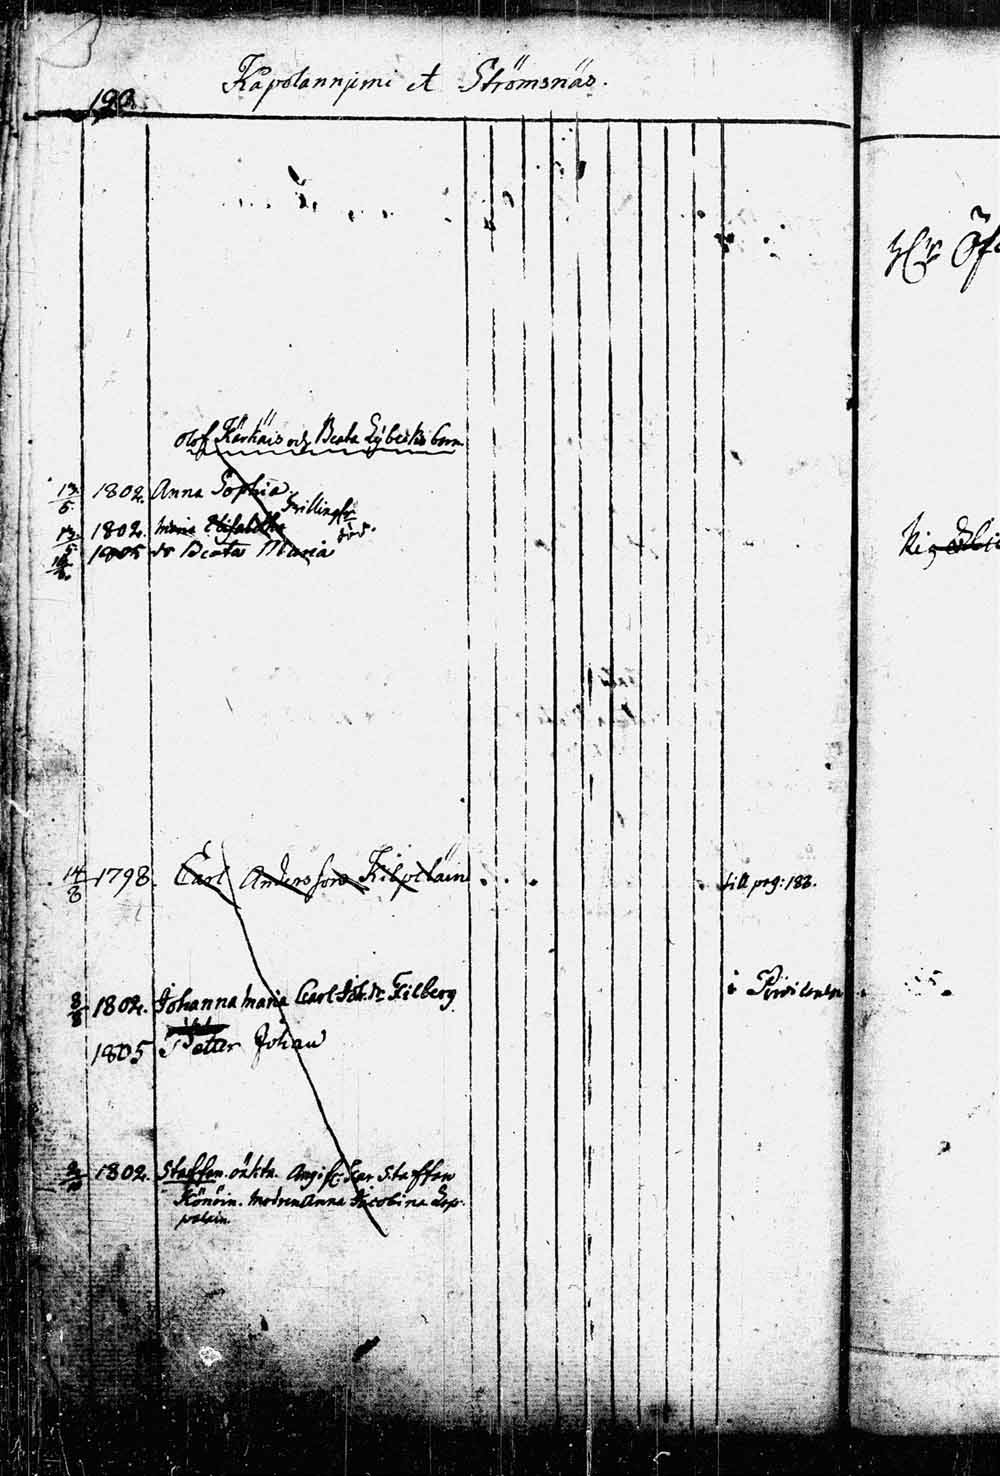 190.
Kapolanniemi et Strömsnäs.
Olof Kärkäis och Beata Lybecks barn
13/5 1802. Anna Sophia
Trillingar
13/5 1802. Maria Elisabetha död.
1805 dr Beata Maria
14/8 1798. Carl Andersson Kilpeläin till pag: 188.
8/8 1802. Johanna Maria Carl Joh. dr Filberg i
1805 Petter Johan
1802. Staffan. oäkta. Angif. far Staffan
Könöin. modren Anna Jacobina Lep-
poläin.
Hr Öf